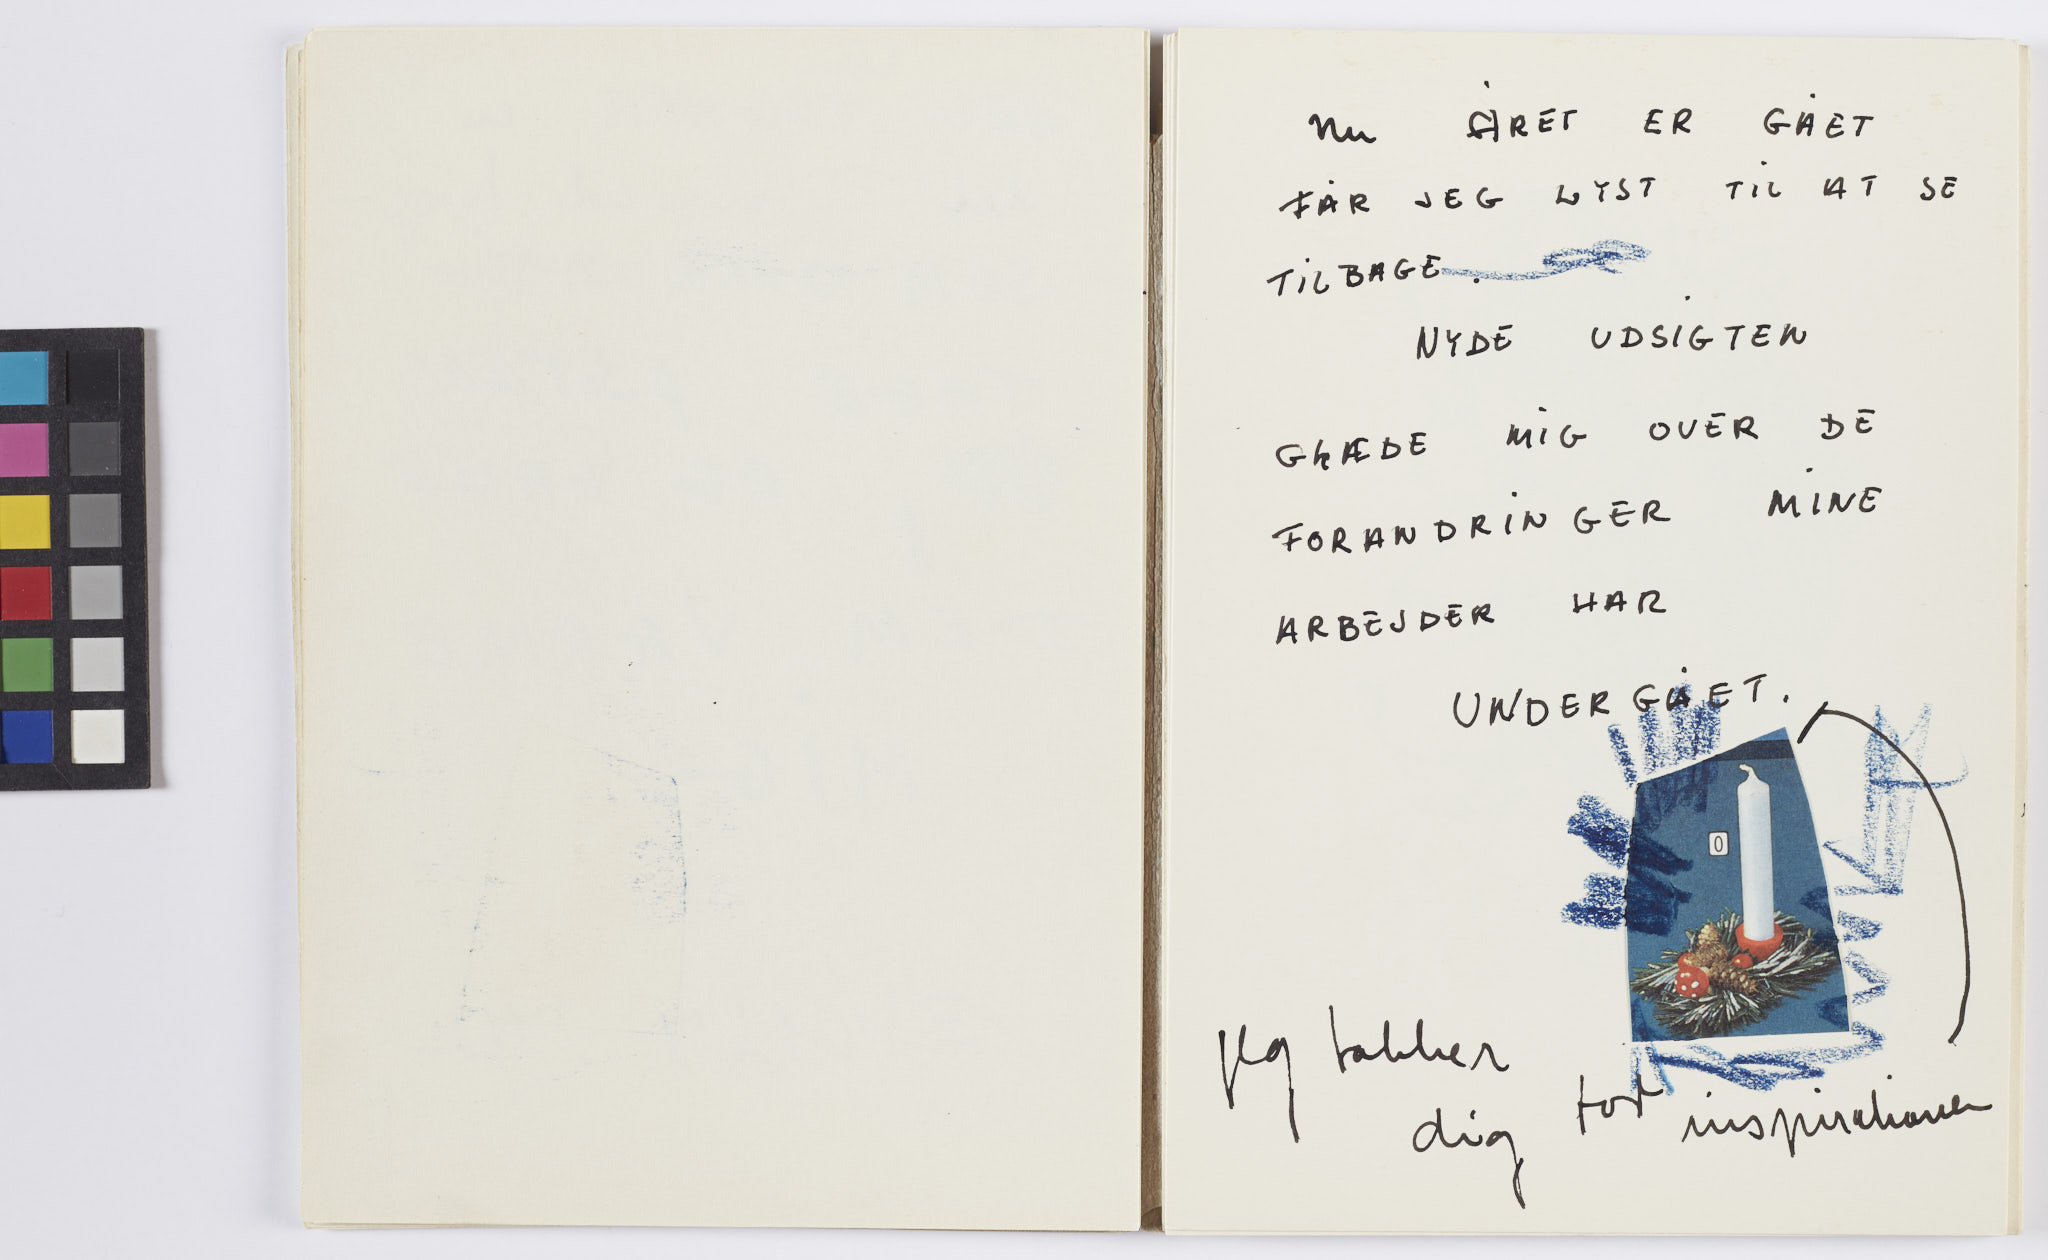 Nu ÅRET ER GÅET
FÅR JEG LYST TIL AT SE
TILBAGE.
NYDE UDSIGTEN
GLÆDE MIG OVER DE
FORANDRINGER MINE
ARBEJDER HAR
UNDERGÅET.
0
jeg takker
dig for inspirationen